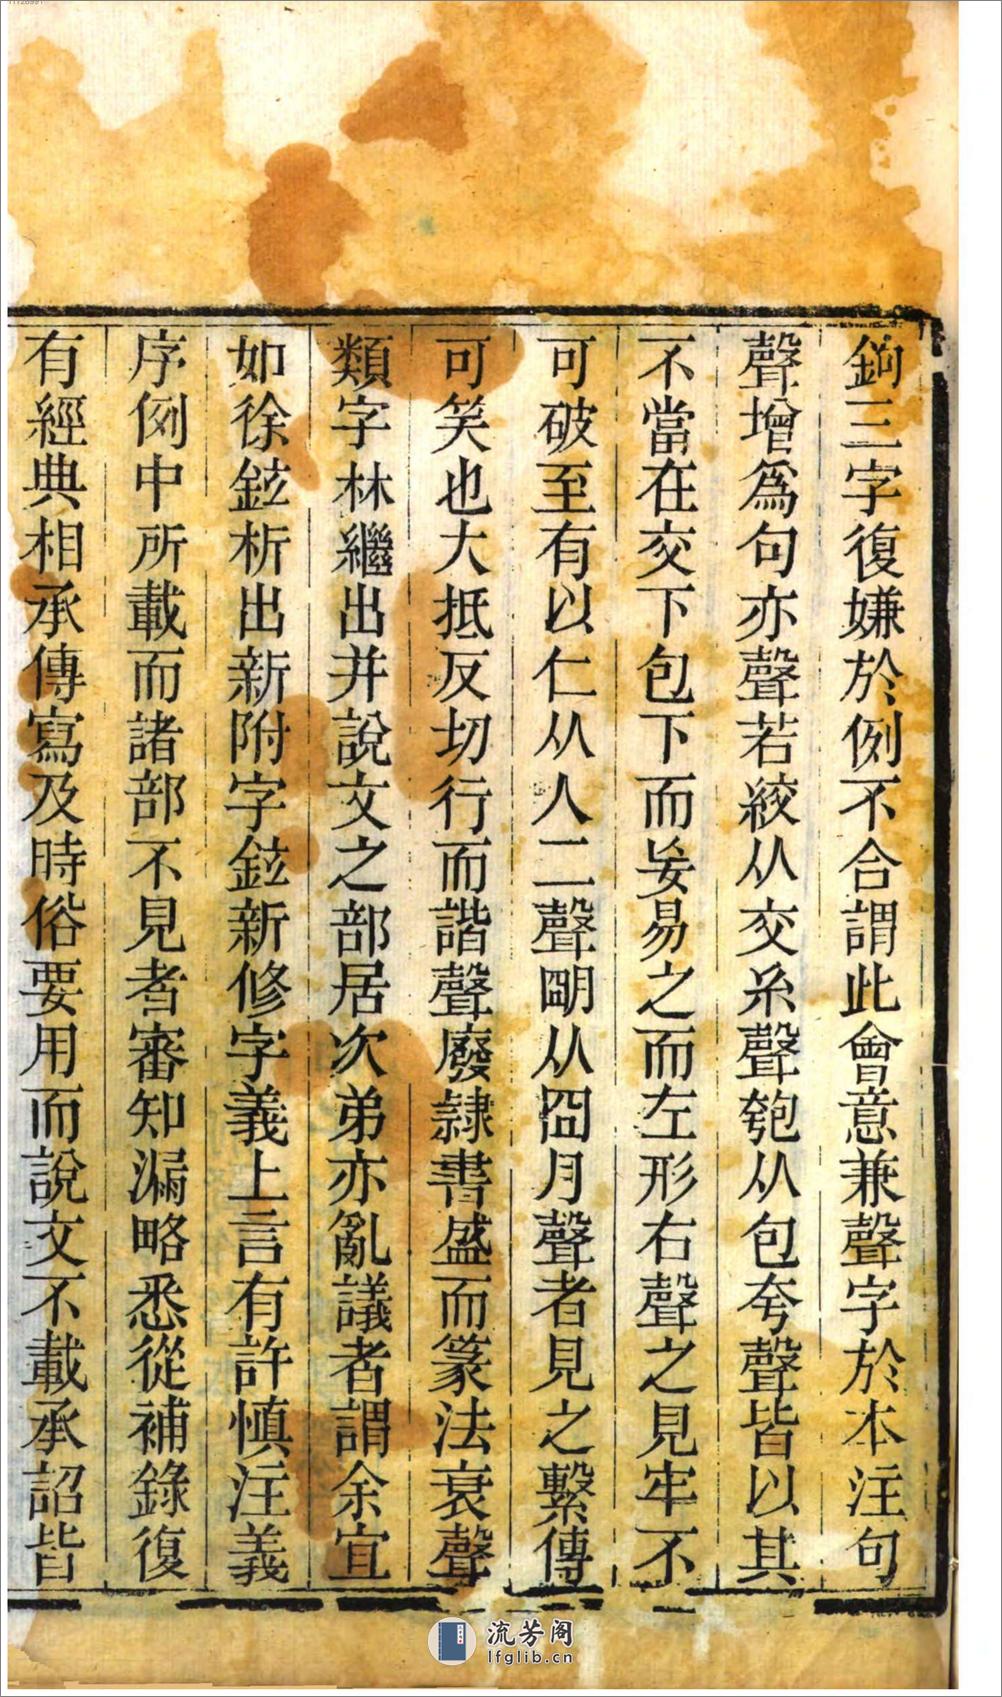 鉤三字復嫌於例不合謂此會意兼聲字於本注句
聲增爲句亦聲若絞从交糸聲匏从包夸聲皆以其
不當在交下包下而妄易之而左形右聲之見牢不
可破至有以仁从人二聲朙从囧月聲者見之繫傳
可笑也大抵反切行而諧聲廢隷書盛而篆法衰聲
類字林繼出并說文之部居次弟亦亂議者謂余宜
如徐鉉析出新附字鉉新修字義上言有許慎注義
序例中所載而諸部不見者審知漏略悉從補錄復
有經典相承傳寫及時俗要用而說文不載承詔皆
流芳阁
lfglib.cn